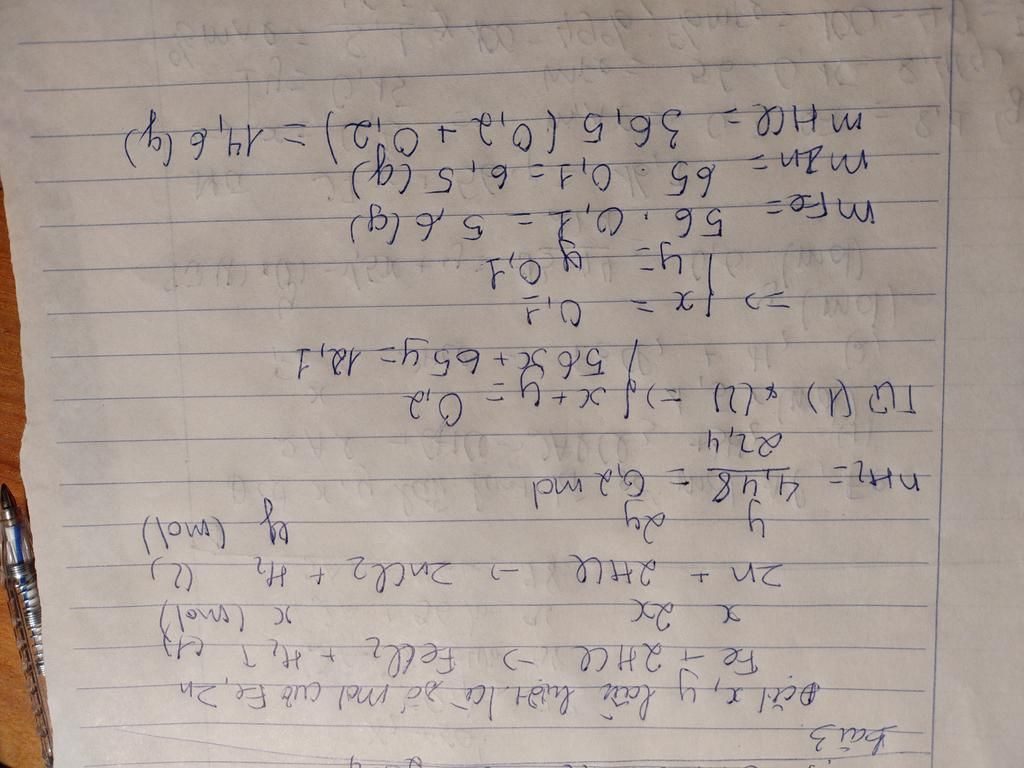 bài 3
Đặt x, y lần lượt là số mol của Fe, Zn
Fe + 2HCl → FeCl2 + H2↑ (1)
x 2x x (mol)
Zn + 2HCl → ZnCl2 + H2 (2)
y 2y y (mol)
nH2 = 4,48 / 22,4 = 0,2 mol
Từ (1) & (2) => { x + y = 0,2
56x + 65y = 12,1
=> { x = 0,1
y = 0,1
mFe = 56 . 0,1 = 5,6 (g)
mZn = 65 . 0,1 = 6,5 (g)
mHCl = 36,5 (0,2 + 0,2) = 14,6 (g)